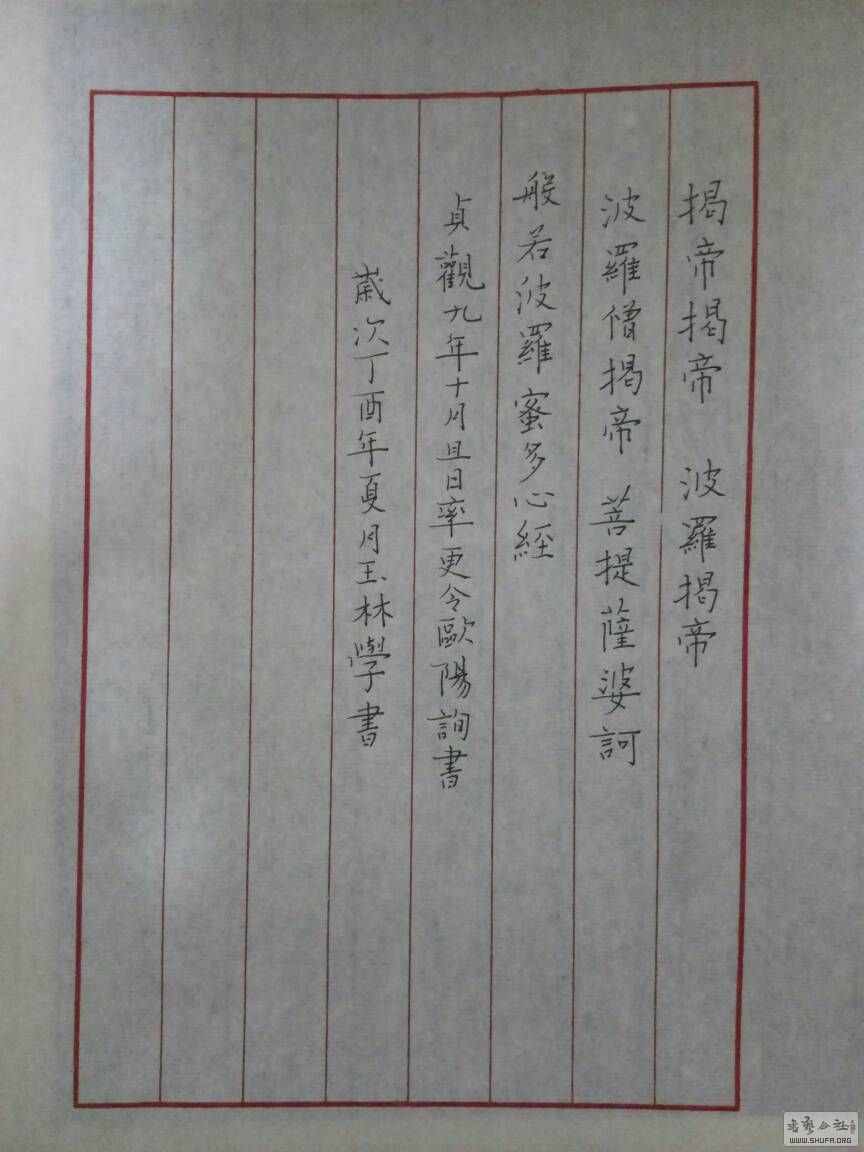 揭帝揭帝 波羅揭帝
波羅僧揭帝 菩提薩婆訶
般若波羅蜜多心經
貞觀九年十月旦日率更令歐陽詢書
歲次丁酉年夏月玉林學書
书艺公社
WWW.SHUFA.ORG